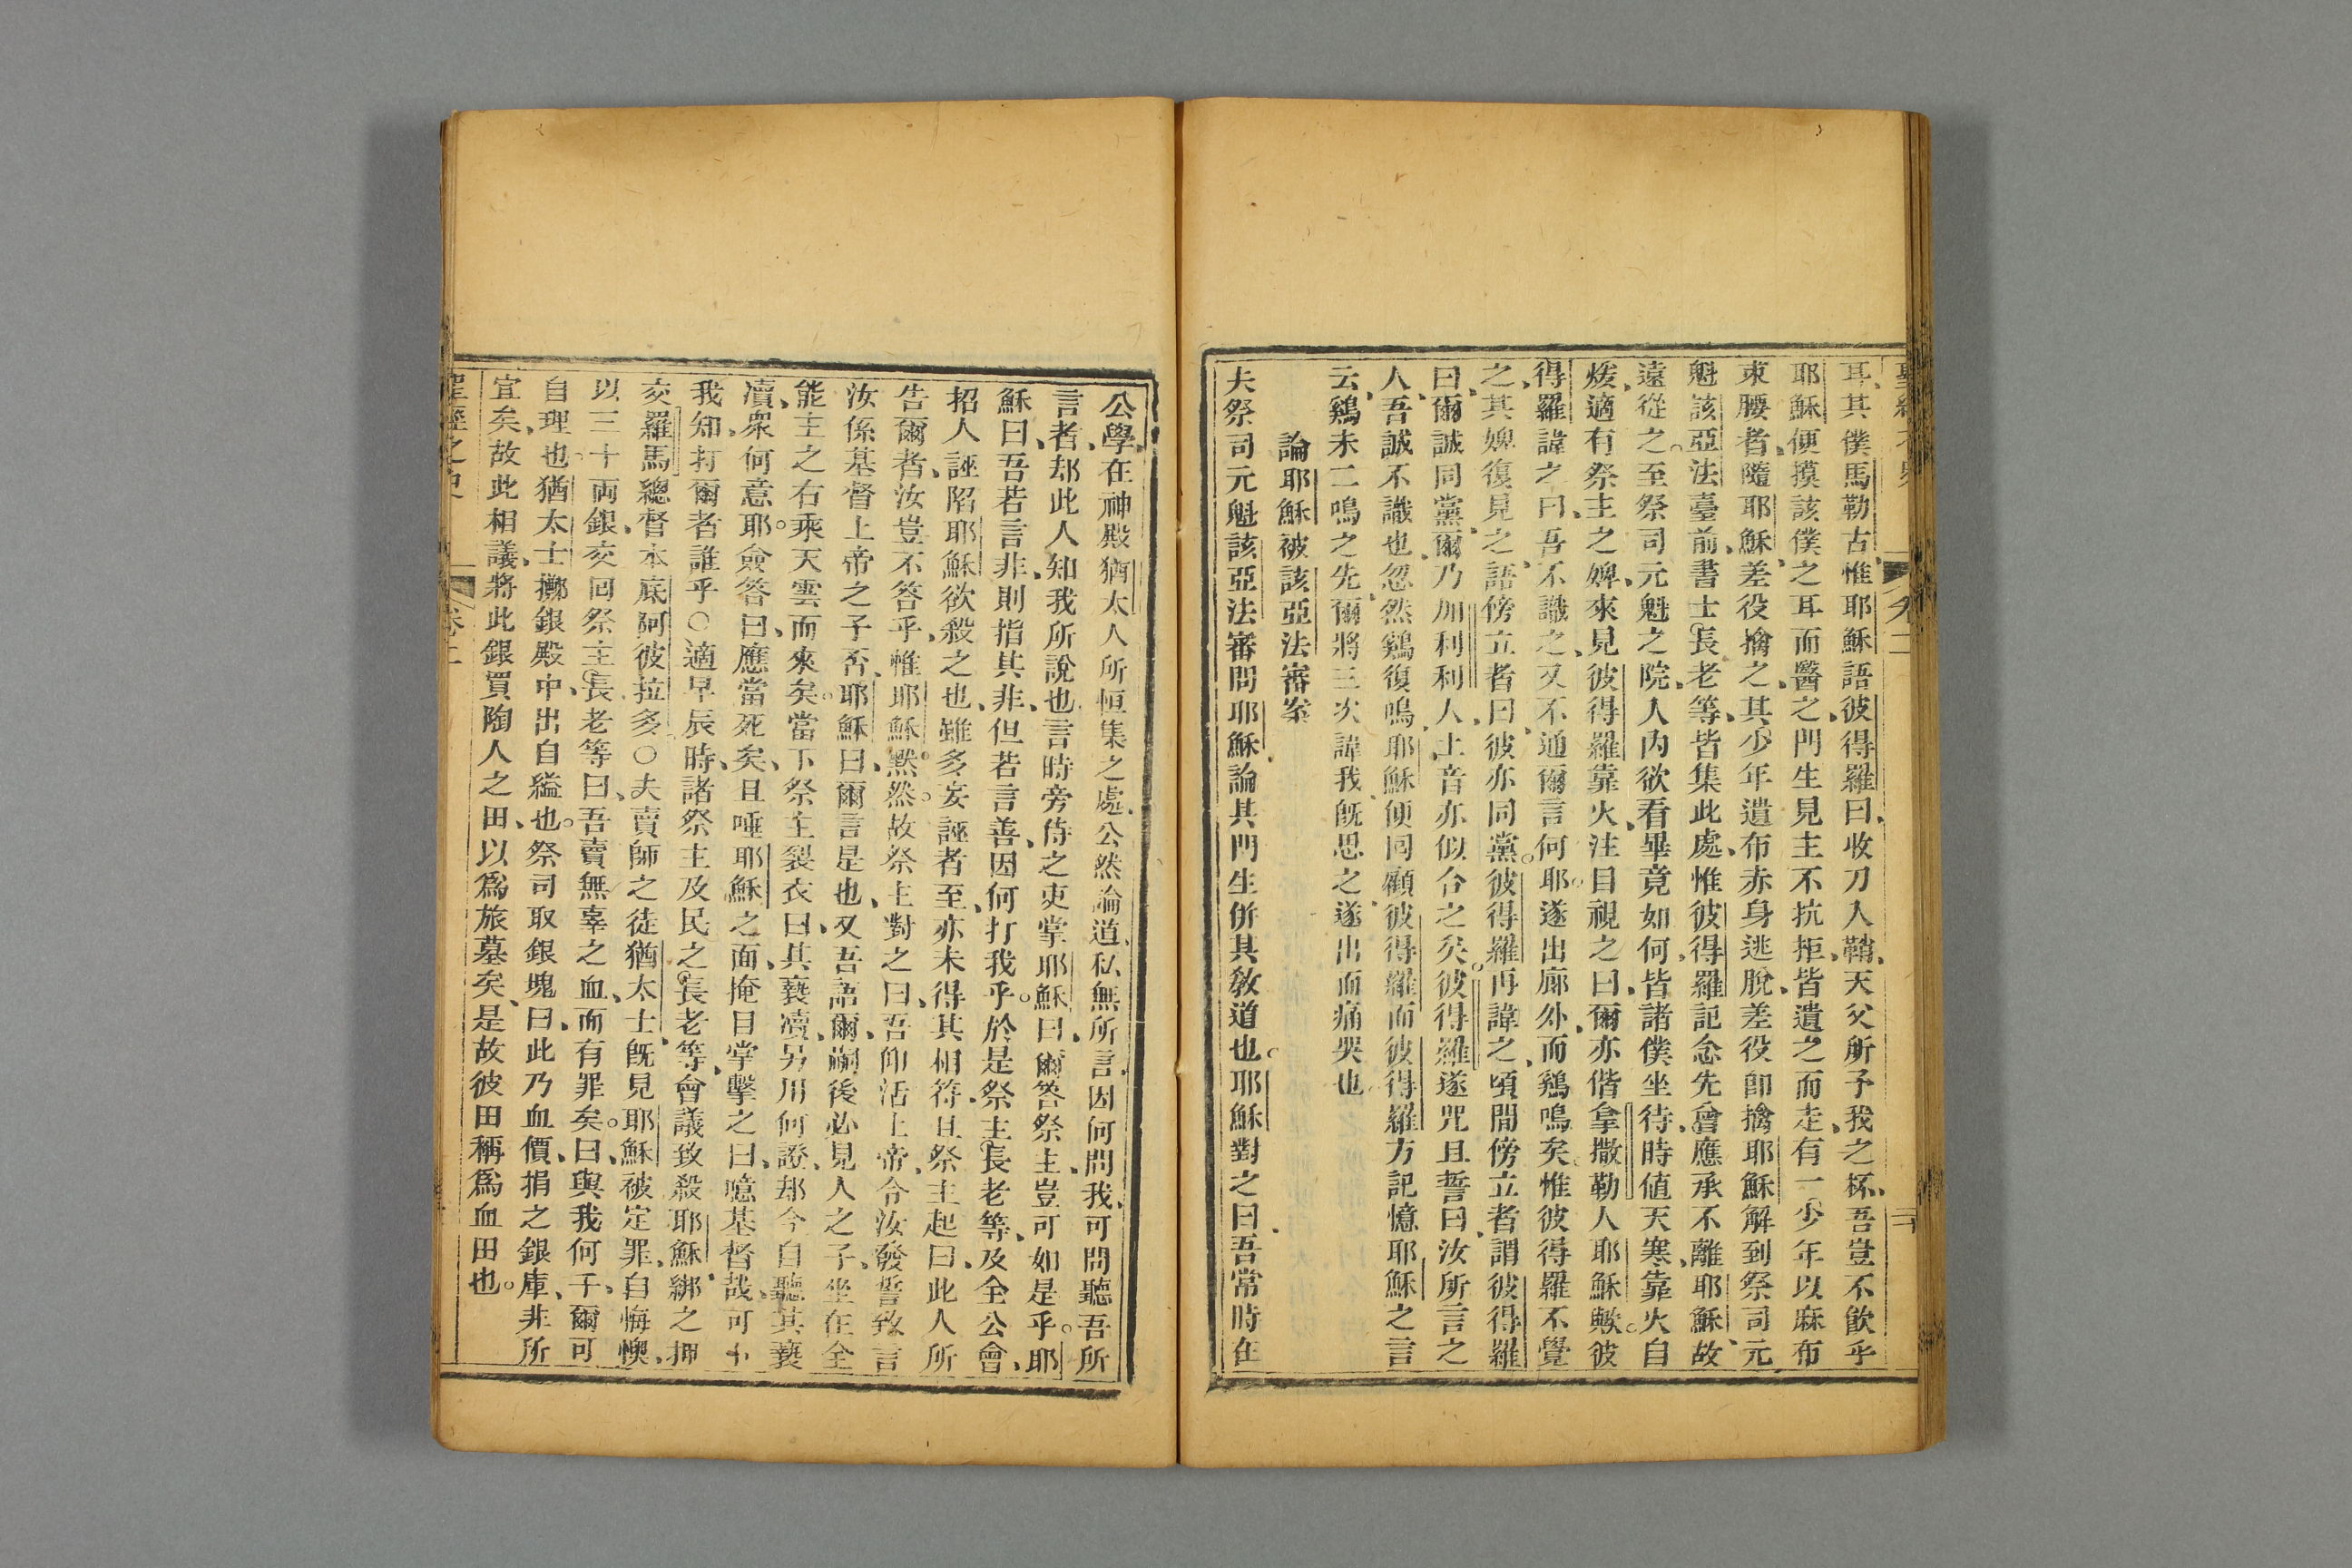 耳、其僕馬勒古、惟耶穌語彼得羅曰、收刀入鞘、天父所予我之杯、吾豈不飲乎
耶穌便摸該僕之耳而醫之、門生見主不抗拒、皆遺之而走、有一少年以麻布
束腰者、隨耶穌、差役擒之、其少年遺布赤身逃脫、差役卽擒耶穌解到祭司元
魁該亞法臺前、書士長老等、皆集此處、惟彼得羅記念先會應承不離耶穌、故
遠從之。至祭司元魁之院、人內欲看畢竟如何、皆諸僕坐待、時值天寒、靠火自
煖、適有祭主之婢、來見彼得羅靠火注目視之曰、爾亦偕拿撒勒人耶穌歟。彼
得羅諱之曰、吾不識之、又不通爾言何耶。遂出廊外、而鷄鳴矣、惟彼得羅不覺
之、其婢復見之、語傍立者曰、彼亦同黨。彼得羅再諱之、頃間傍立者謂彼得羅
曰、爾誠同黨、爾乃加利利人、土音亦似合之矣。彼得羅遂咒且誓曰、汝所言之
人、吾誠不識也、忽然鷄復鳴、耶穌便回顧彼得羅而彼得羅方記憶耶穌之言
云、鷄未二鳴之先、爾將三次諱我、旣思之、遂出而痛哭也
論耶穌被該亞法審案
夫祭司元魁該亞法審問耶穌、論其門生併其敎道也。耶穌對之曰、吾常時在
公學、在神殿猶太人所恒集之處、公然論道、私無所言、因何問我、可問聽吾所
言者、却此人知我所說也、言時旁侍之吏掌耶穌曰、爾答祭主、豈可如是乎。耶
穌曰、吾若言非、則指其非、但若言善、因何打我乎。於是祭主長老等、及全公會、
招人誣陷耶穌欲殺之也、雖多妄誣者至、亦未得其相符、且祭主起曰、此人所
告爾者、汝豈不答乎、惟耶穌默然。故祭主對之曰、吾仰活上帝、令汝發誓致言
汝係基督上帝之子否、耶穌曰、爾言是也、又吾語爾、嗣後必見人之子、坐在全
能主之右乘天雲而來矣。當下祭主裂衣曰、其褻瀆、另用何證、却今自聽其褻
瀆、衆何意耶。僉答曰、應當死矣、且唾耶穌之面、掩目掌擊之曰、噫基督哉、可卜
我知、打爾者誰乎○適早辰時、諸祭主及民之長老等、會議致殺耶穌、綁之押
交羅馬總督本底阿彼拉多○夫賣師之徒猶太士、旣見耶穌被定罪、自悔懊、
以三十両銀、交回祭主長老等曰、吾賣無辜之血、而有罪矣。曰、與我何干、爾可
自理也。猶太士擲銀殿中、出自縊也。祭司取銀塊曰、此乃血價、捐之銀庫、非所
宜矣、故此相議、將此銀買陶人之田、以爲旅墓矣、是故彼田稱爲血田也。
聖經之史 卷二